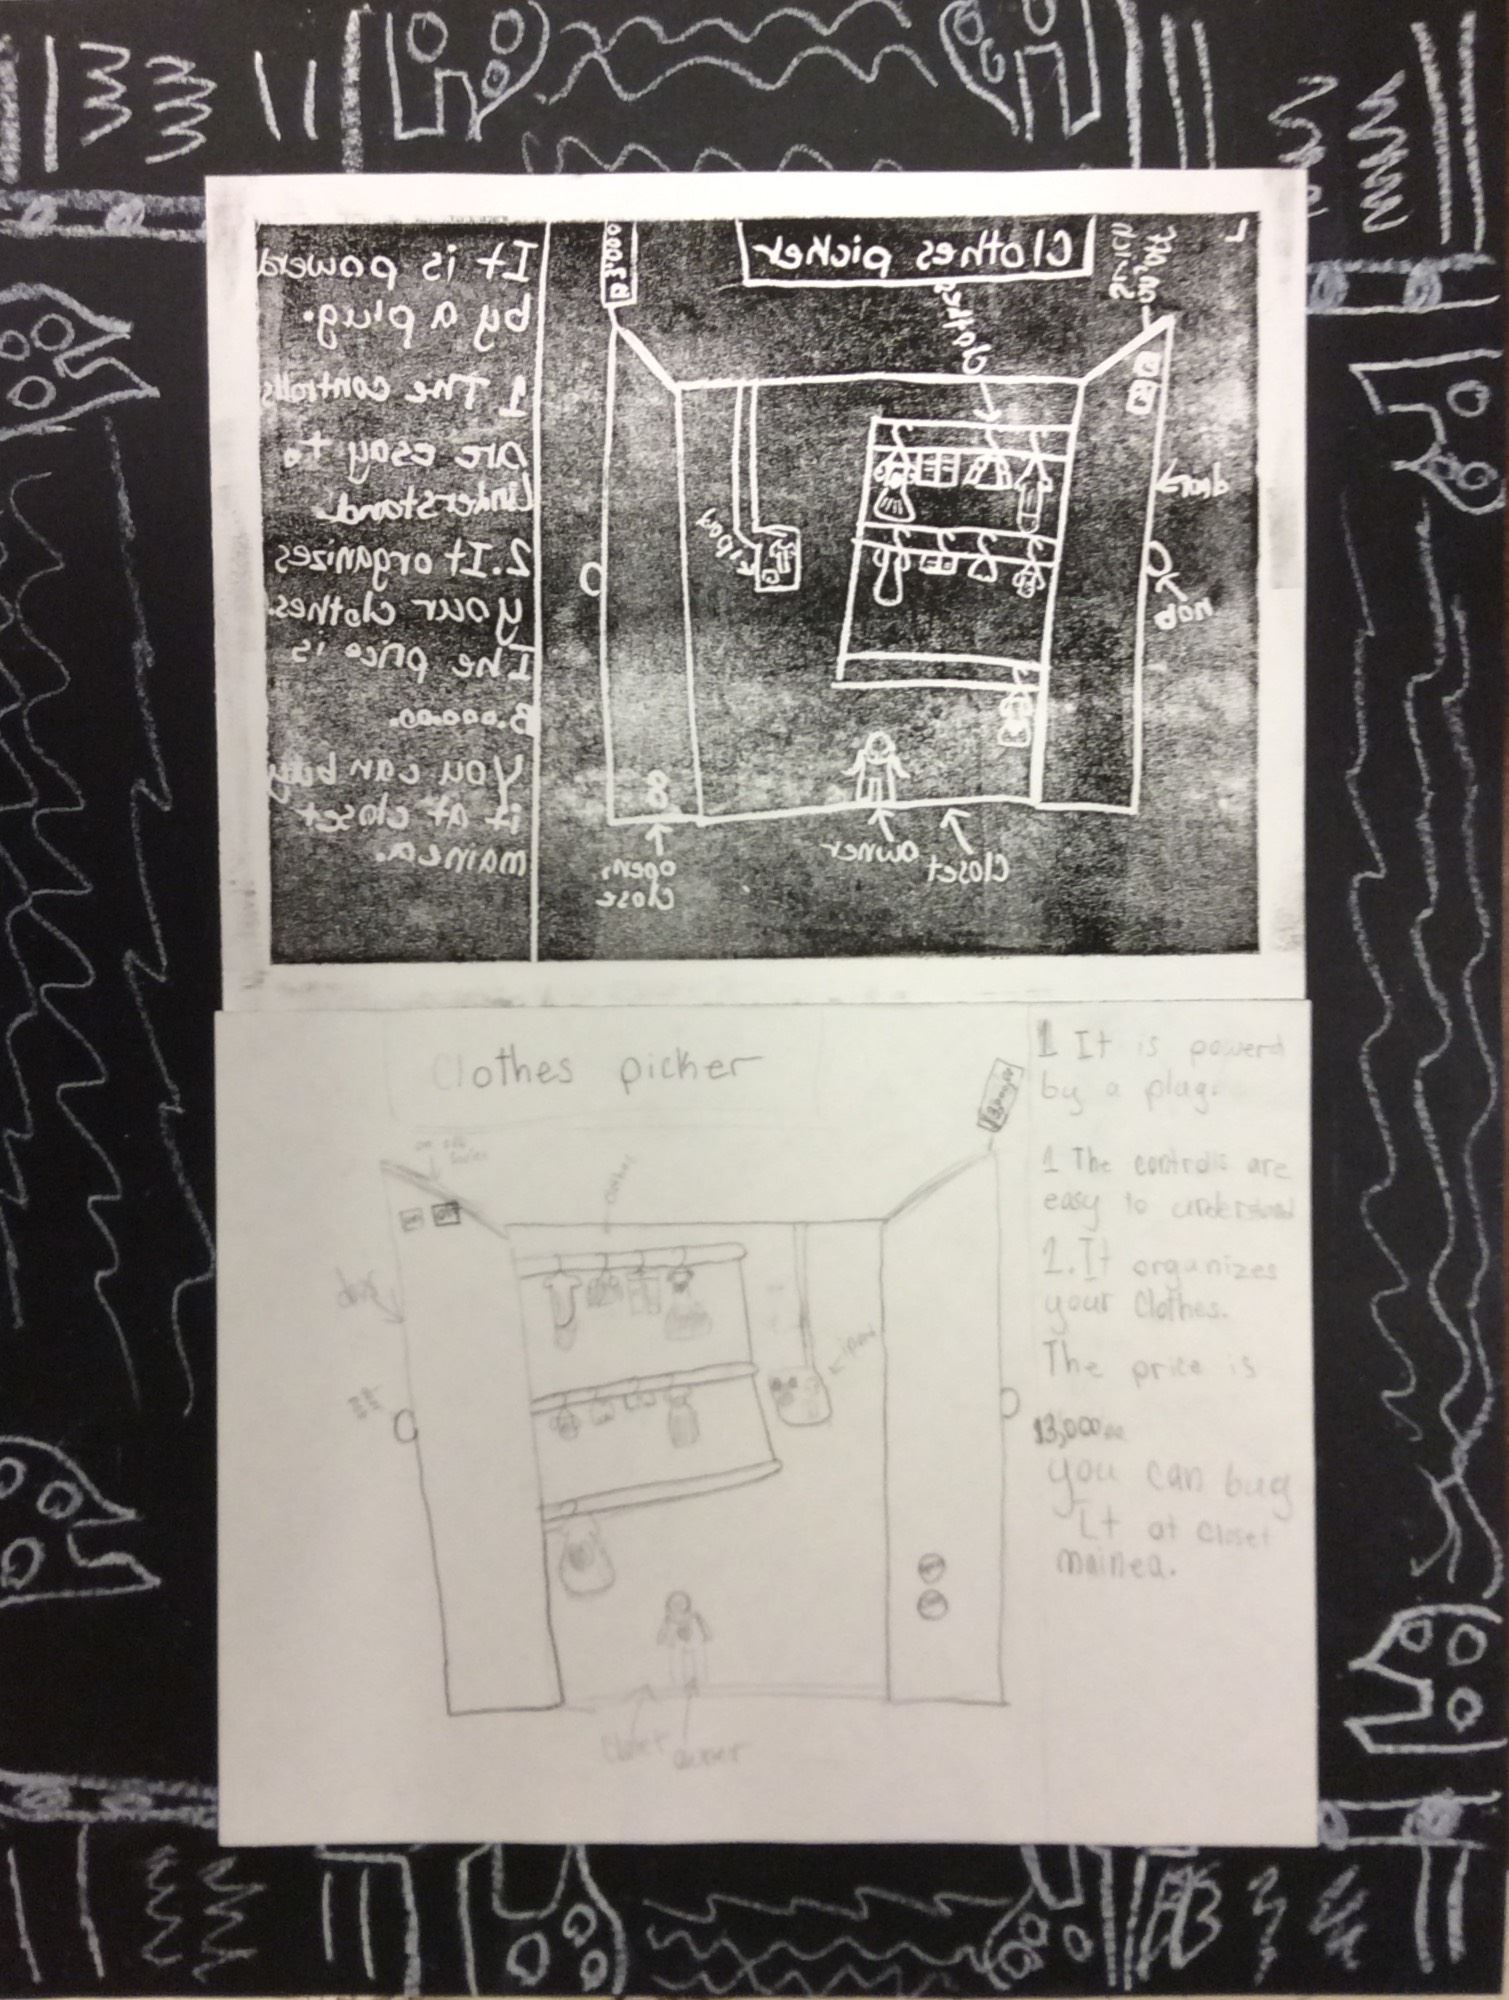 Clothes picker
Swich
on, off
clothes
13,000
door
nob
ipad
open,
close
owner
Closet
It is powerd
by a plug.
1 The controlls
are esay to
Understand.
2. It organizes
your clothes.
The price is
You can buy
it at closet
mainea.
Clothes picker
on off
clothes
door
ipad
closet
owner
1 It is powerd
by a plug.
1 The controlls are
easy to understand
2. It organizes
your Clothes.
The price is
13,000.00
you can buy
It at closet
mainea.